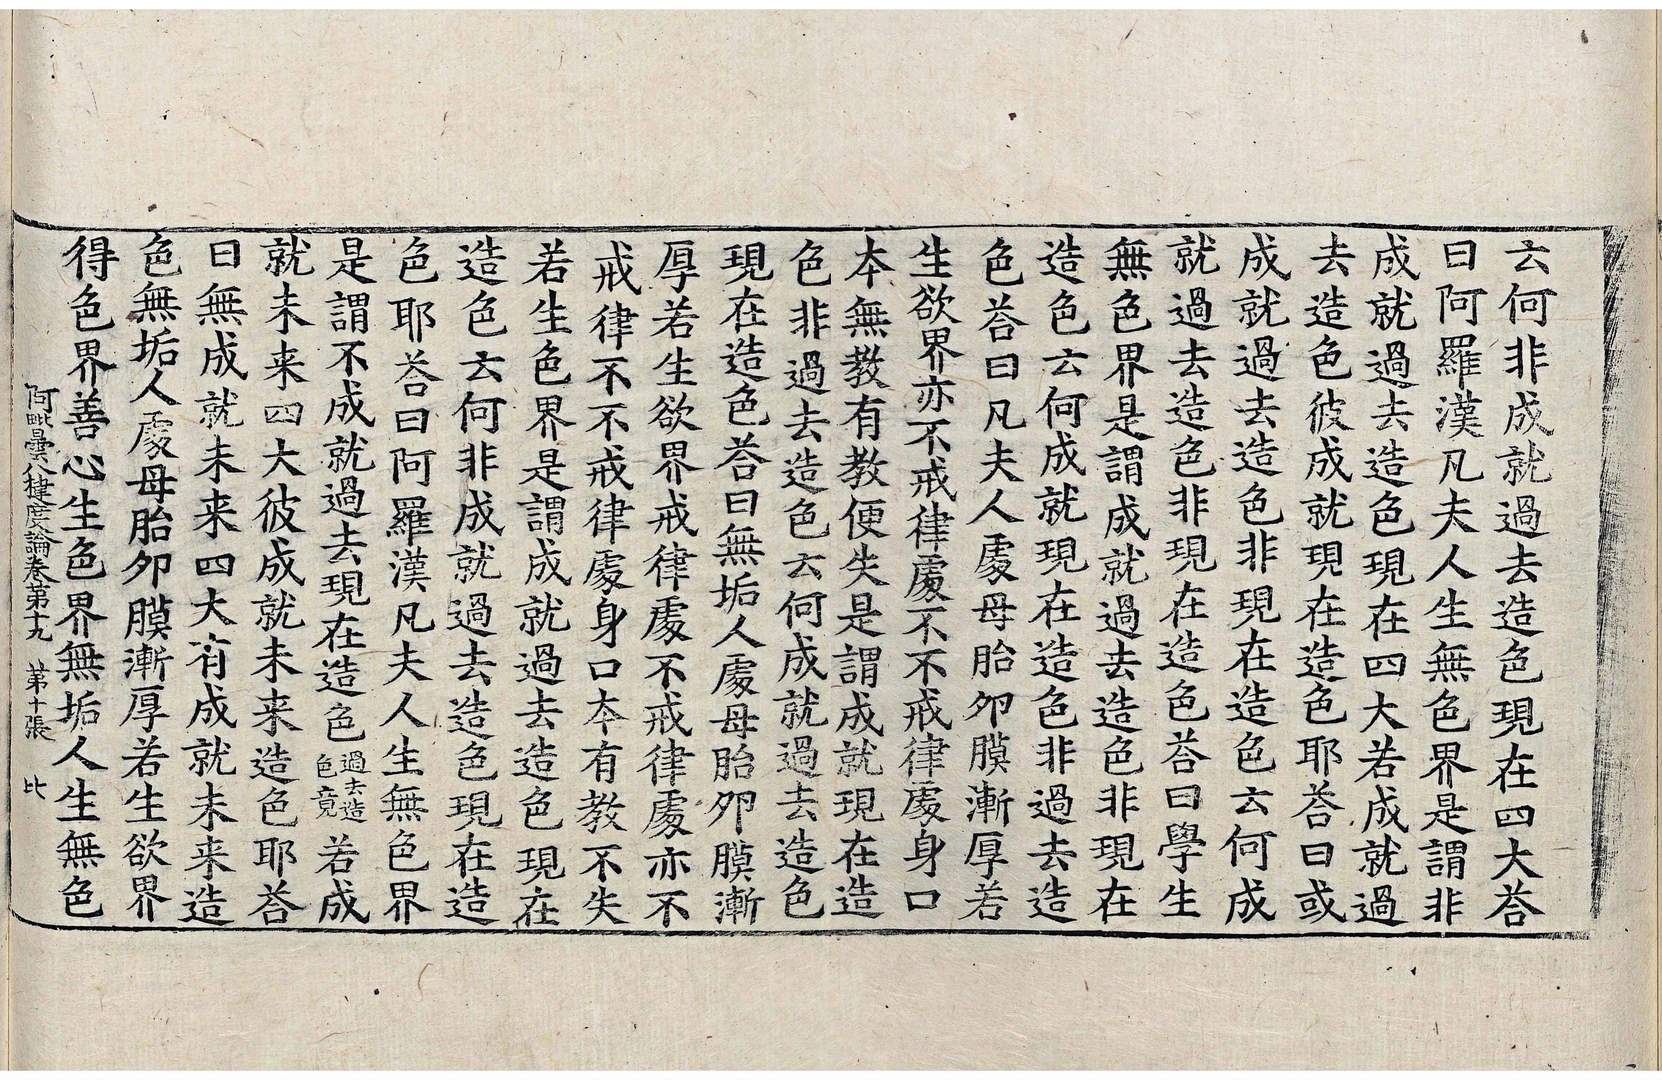 云何非成就過去造色現在四大荅
曰阿羅漢凡夫人生無色界是謂非
成就過去造色現在四大若成就過
去造色彼成就現在造色耶荅曰或
成就過去造色非現在造色云何成
就過去造色非現在造色荅曰學生
無色界是謂成就過去造色非現在
造色云何成就現在造色非過去造
色荅曰凡夫人處母胎夘膜漸厚若
生欲界亦不戒律處不不戒律處身口
本無教有教便失是謂成就現在造
色非過去造色云何成就過去造色
現在造色荅曰無垢人處母胎夘膜漸
厚若生欲界戒律處不戒律處亦不
戒律不不戒律處身口本有教不失
若生色界是謂成就過去造色現在
造色云何非成就過去造色現在造
色耶荅曰阿羅漢凡夫人生無色界
是謂不成就過去現在造色過去造色竟若成
就未来四大彼成就未来造色耶荅
曰無成就未来四大有成就未来造
色無垢人處母胎夘膜漸厚若生欲界
得色界善心生色界無垢人生無色
阿毗曇八犍度論卷第十九 第十張 比